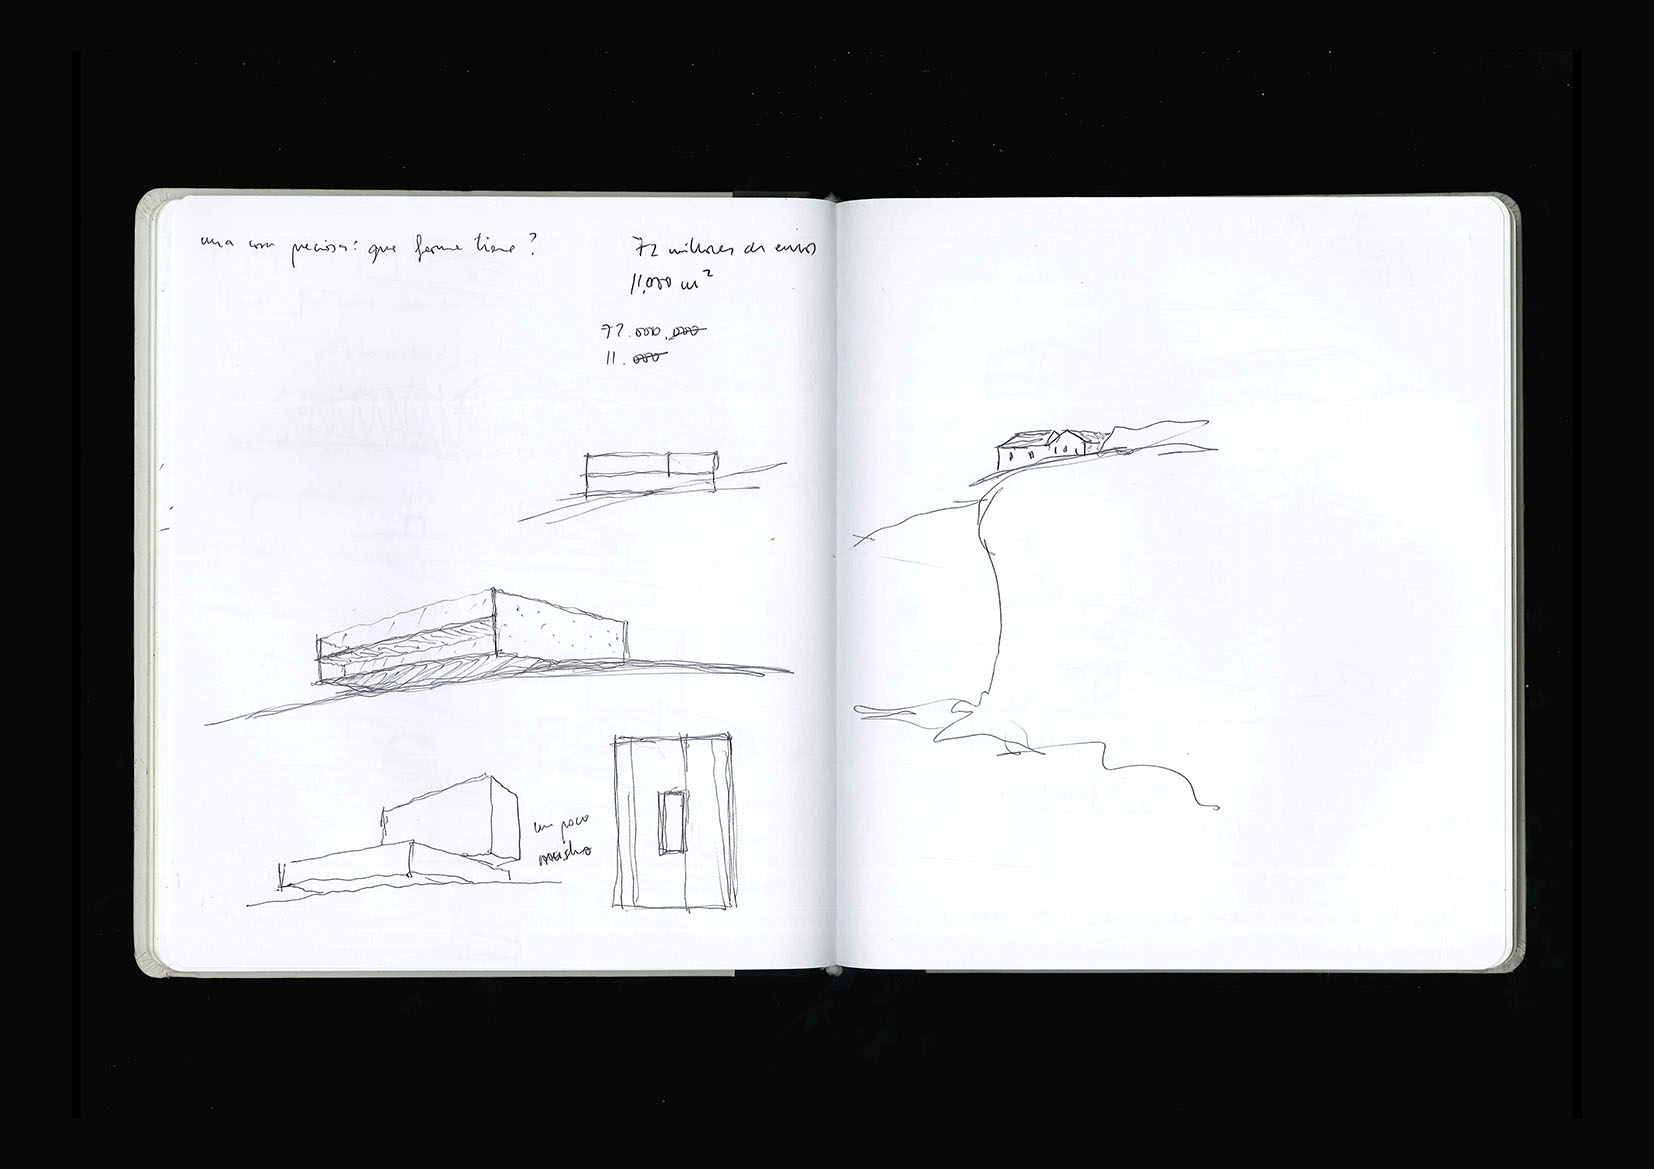 una cosa preciosa: que forma tiene?
72 millones de euros
11,000 m²
72.000.000
11.000
un poco